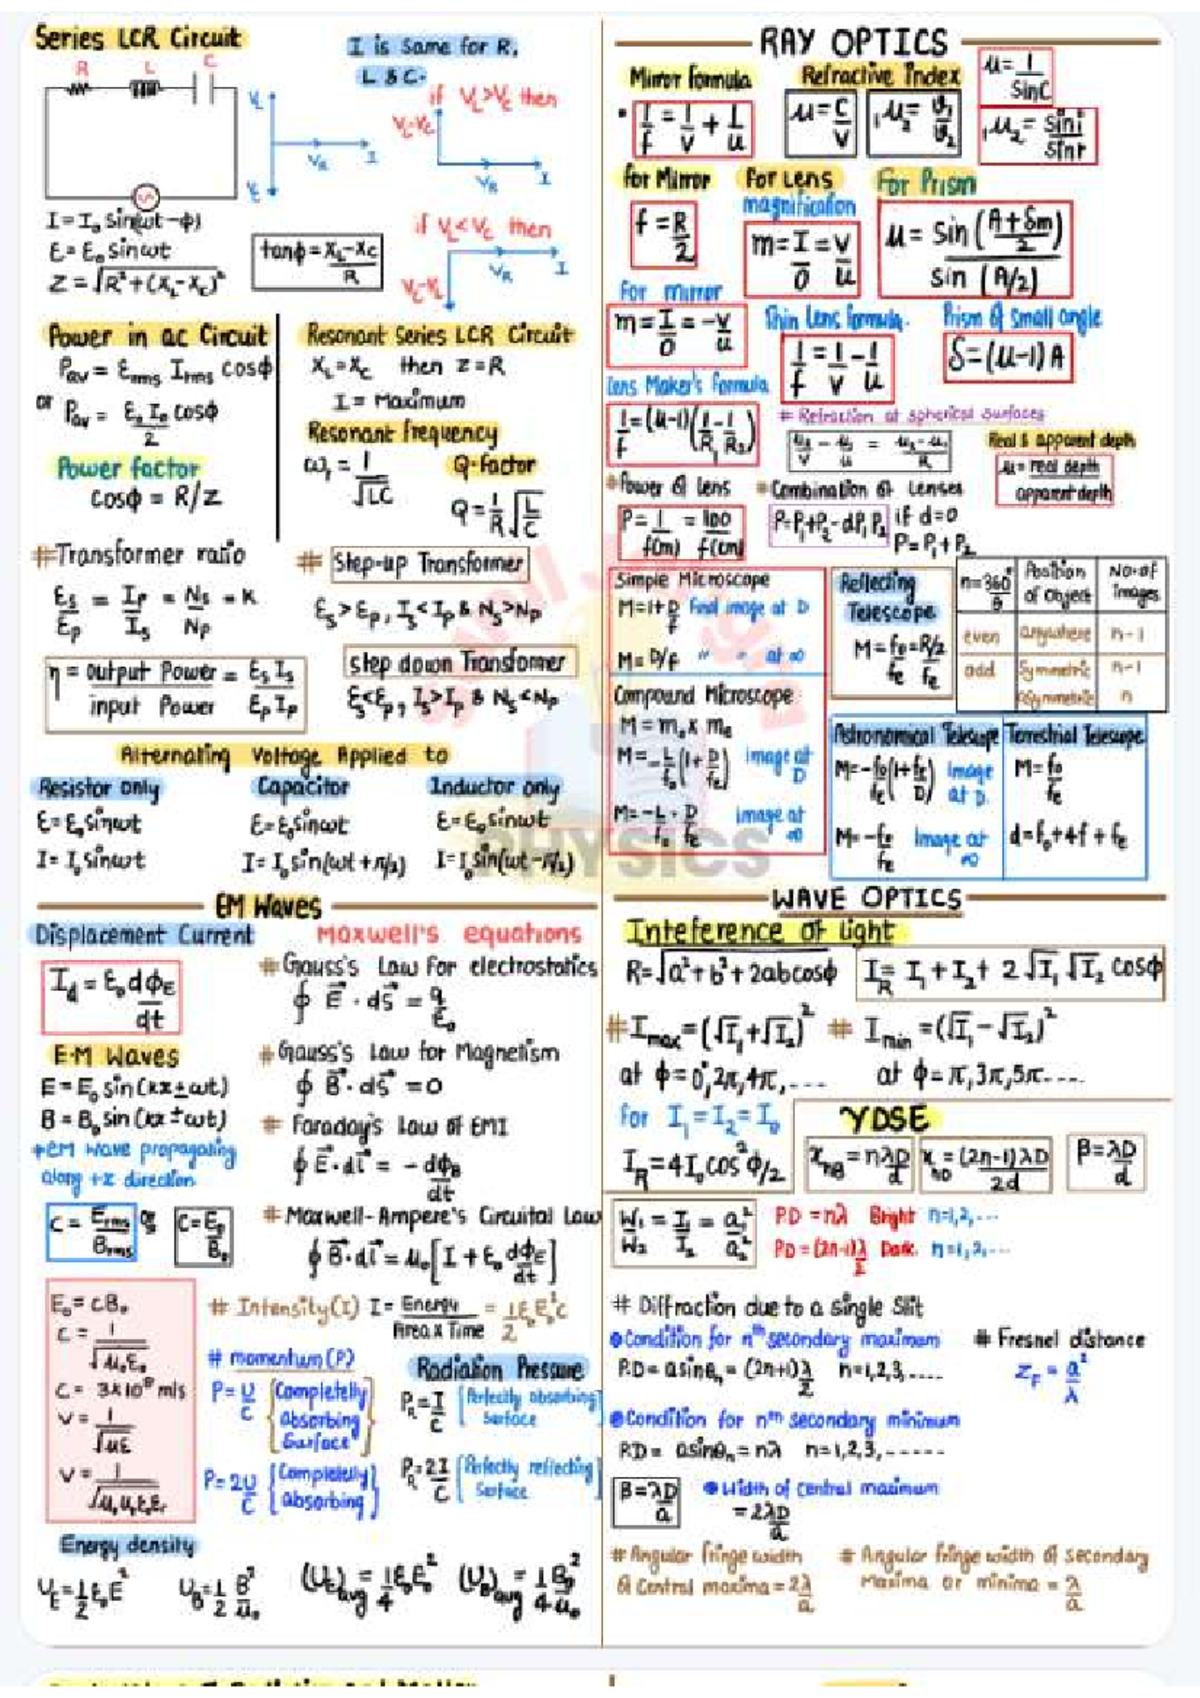 Series LCR Circuit
R L C
I is same for R,
L & C.
if V_L>V_C then
V_L V_R I V_C
V_L-V_C V_R I
I = I₀ sin(ωt-ϕ)
ε = ε₀ sinωt
Z = √R²+(X_L-X_C)²
tanϕ = X_L-X_C / R
if V_L<V_C then
V_R I
V_C-V_L
Power in ac Circuit
P_av = ε_rms I_rms cosϕ
or P_av = ε₀ I₀ cosϕ / 2
Power factor
cosϕ = R/Z
Resonant Series LCR Circuit
X_L = X_C then Z = R
I = Maximum
Resonant frequency
ω_r = 1/√LC
Q-factor
Q = 1/R √L/C
#Transformer ratio
E_s/E_p = I_p/I_s = N_s/N_p = K
η = output Power / input Power = E_s I_s / E_p I_p
# Step-up Transformer
E_s > E_p, I_s < I_p & N_s > N_p
step down Transformer
E_s < E_p, I_s > I_p & N_s < N_p
Alternating Voltage Applied to
Resistor only Capacitor Inductor only
ε = ε₀ sinωt ε = ε₀ sinωt ε = ε₀ sinωt
I = I₀ sinωt I = I₀ sin(ωt + π/2) I = I₀ sin(ωt - π/2)
EM Waves
Displacement Current
I_d = ε₀ dϕ_E/dt
E·M Waves
E = E₀ sin(kx±ωt)
B = B₀ sin(kx±ωt)
+EM wave propagating
along +x direction
C = E_rms/B_rms or C = E₀/B₀
E₀ = cB₀
C = 1/√μ₀ε₀
C = 3×10⁸ m/s
V = 1/√με
V = 1/√μ₀μᵣε₀εᵣ
Maxwell's equations
#Gauss's Law for electrostatics
∮ E⃗ · ds⃗ = q/ε₀
#Gauss's law for Magnetism
∮ B⃗ · ds⃗ = 0
# Faraday's Law of EMI
∮ E⃗ · dl⃗ = - dϕ_B/dt
#Maxwell-Ampere's Circuital Law
∮ B⃗ · dl⃗ = μ₀[I + ε₀ dϕ_E/dt]
# Intensity(I) I = Energy / Area x Time = 1/2 ε₀E₀²c
# momentum(P)
P = U/C {Completelly
absorbing
Surface}
P = 2U/C {Completelly
absorbing}
Radiation Pressure
P_R = I/C {Perfectly absorbing
Surface
P_R = 2I/C {Perfectly reflecting
Surface
Energy density
U_E = 1/2 ε₀E² U_B = 1/2 B²/μ₀ (U_E)avg = 1/4 ε₀E₀² (U_B)avg = 1/4 B₀²/μ₀
RAY OPTICS
Mirror formula
1/f = 1/v + 1/u
Refractive index
μ = C/V ₁μ₂ = v₁/v₂
μ = 1/sinC
₁μ₂ = sini/sinr
for Mirror
f = R/2
For Lens
magnification
m = I/O = v/u
For Prism
μ = sin(A+δm / 2) / sin (A/2)
For mirror
m = I/O = -v/u
Thin Lens formula.
1/f = 1/v - 1/u
Prism of Small angle
δ = (μ-1) A
Lens Maker's formula
1/f = (μ-1)(1/R₁ - 1/R₂)
# Refraction at spherical surfaces
μ₂/v - μ₁/u = μ₂-μ₁/R
Real & apparent depth
μ = real depth / apparent depth
#Power of Lens
P = 1/f(m) = 100/f(cm)
#Combination of Lenses
P = P₁+P₂-dP₁P₂ if d=0
P = P₁+P₂
Simple Microscope
M = 1+ D/f Final image at D
M = D/f " " at ∞
Compound Microscope
M = mₒ x mₑ
M = -L/fₒ (1+ D/fₑ) image at D
M = -L/fₒ · D/fₑ image at ∞
Reflecting
Telescope
M = fₒ/fₑ = R/2 / fₑ
n = 360°/θ Position of Object No·of images
even anywhere n-1
odd Symmetric n-1
asymmetric n
Astronomical Telescope
M = -fₒ/fₑ (1+ fₑ/D) image at D.
M = -fₒ/fₑ image at ∞
Terrestrial Telescope
M = fₒ/fₑ
d = fₒ+4f+fₑ
PHYSICS
WAVE OPTICS
Inteference of light
R = √a²+b²+2abcosϕ I_R = I₁+I₂+2√I₁√I₂ cosϕ
#I_max = (√I₁+√I₂)² # I_min = (√I₁-√I₂)²
at ϕ = 0°,2π,4π,.... at ϕ = π,3π,5π....
for I₁=I₂=I₀
I_R = 4I₀cos²ϕ/2
YDSE
x_nB = nλD/d x_nD = (2n-1)λD/2d β = λD/d
W₁/W₂ = I₁/I₂ = a₁²/a₂²
P.D = nλ Bright n=1,2,...
P.D = (2n-1)λ/2 Dark. n=1,2,...
# Diffraction due to a single Slit
Condition for nᵗʰ secondary maximum
P.D = asinθₙ = (2n+1)λ/2 n=1,2,3,.....
# Fresnel distance
Z_F = a²/λ
Condition for nᵗʰ secondary minimum
P.D = asinθₙ = nλ n=1,2,3,......
β = λD/a
Width of central maximum
= 2λD/a
# Angular fringe width
of Central maxima = 2λ/a
# Angular fringe width of secondary
maxima or minima = λ/a